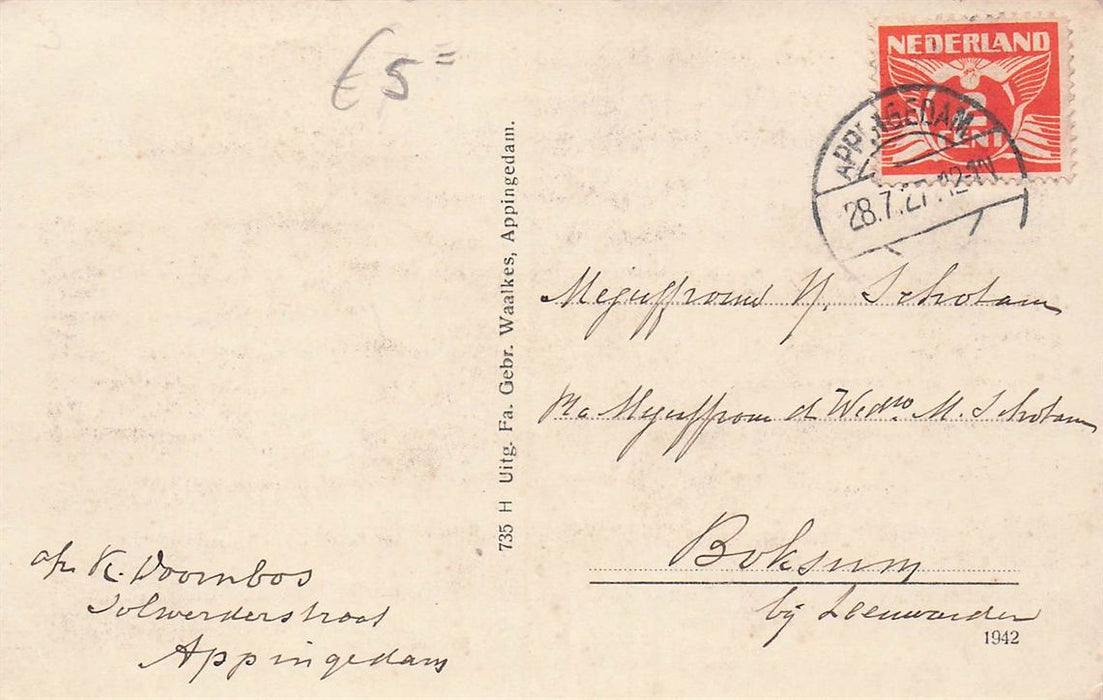 € 5=
NEDERLAND
2
CENT
APPINGEDAM
28.7.27.12-1N
735 H Uitg. Fa. Gebr. Waalkes, Appingedam.
Mejuffrouw Schotam
Mejuffrouw d Wedw. M. Schotam
Boksum
bij Leeuwarden
1942
afz. K. Doornbos
Solwerderstraat
Appingedam